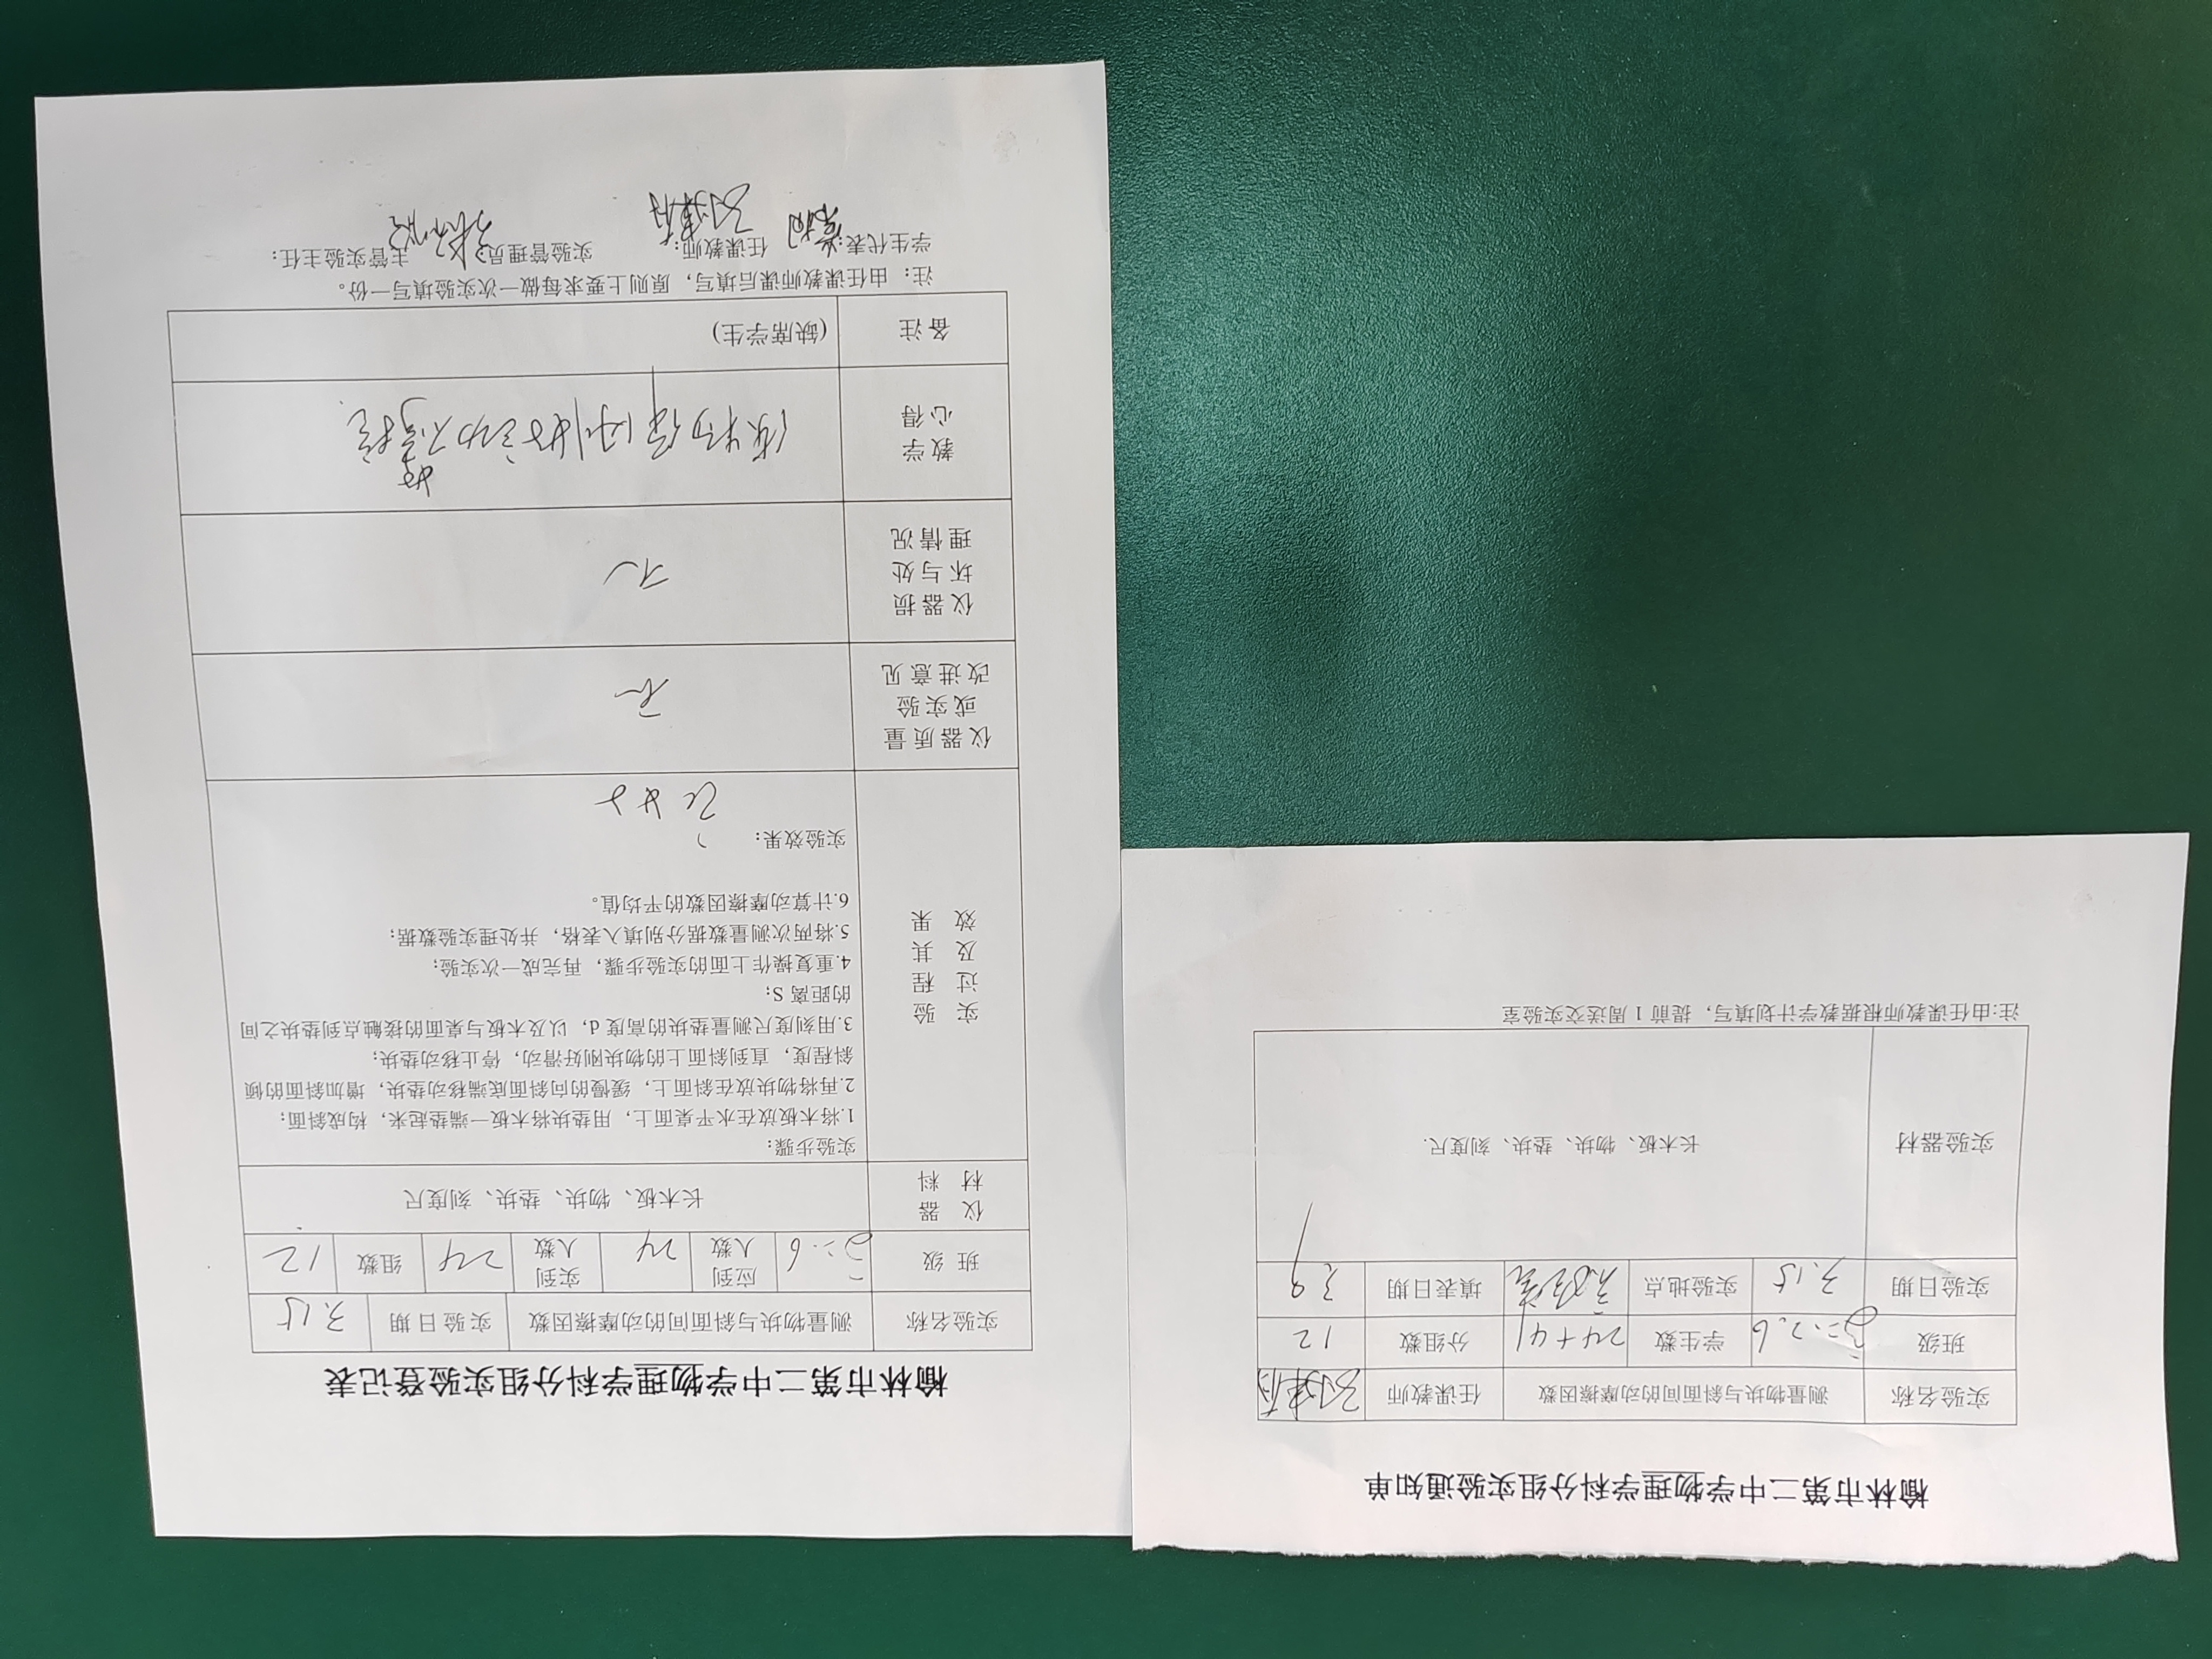 榆林市第二中学物理学科分组实验通知单
实验名称 测量物块与斜面间的动摩擦因数 任课教师
班级 学生数 24+41 分组数 12
实验日期 3.15 实验地点 填表日期 3.9
实验器材 长木板、物块、垫块、刻度尺.
注:由任课教师根据教学计划填写，提前 1 周送交实验室
榆林市第二中学物理学科分组实验登记表
实验名称 测量物块与斜面间的动摩擦因数 实验日期 3.15
班级 应到人数 24 实到人数 24 组数 12
仪器材料 长木板、物块、垫块、刻度尺
实验过程及其效果
实验步骤：
1.将木板放在水平桌面上，用垫块将木板一端垫起来，构成斜面；
2.再将物块放在斜面上，缓慢的向斜面底端移动垫块，增加斜面的倾
斜程度，直到斜面上的物块刚好滑动，停止移动垫块；
3.用刻度尺测量垫块的高度 d，以及木板与桌面的接触点到垫块之间
的距离 S；
4.重复操作上面的实验步骤，再完成一次实验；
5.将两次测量数据分别填入表格，并处理实验数据；
6.计算动摩擦因数的平均值。
实验效果：
仪器质量或实验改进意见 无
仪器损坏与处理情况 无
教学心得
备注 (缺席学生)
注：由任课教师课后填写，原则上要求每做一次实验填写一份。
学生代表： 任课教师： 实验管理员： 主管实验主任：